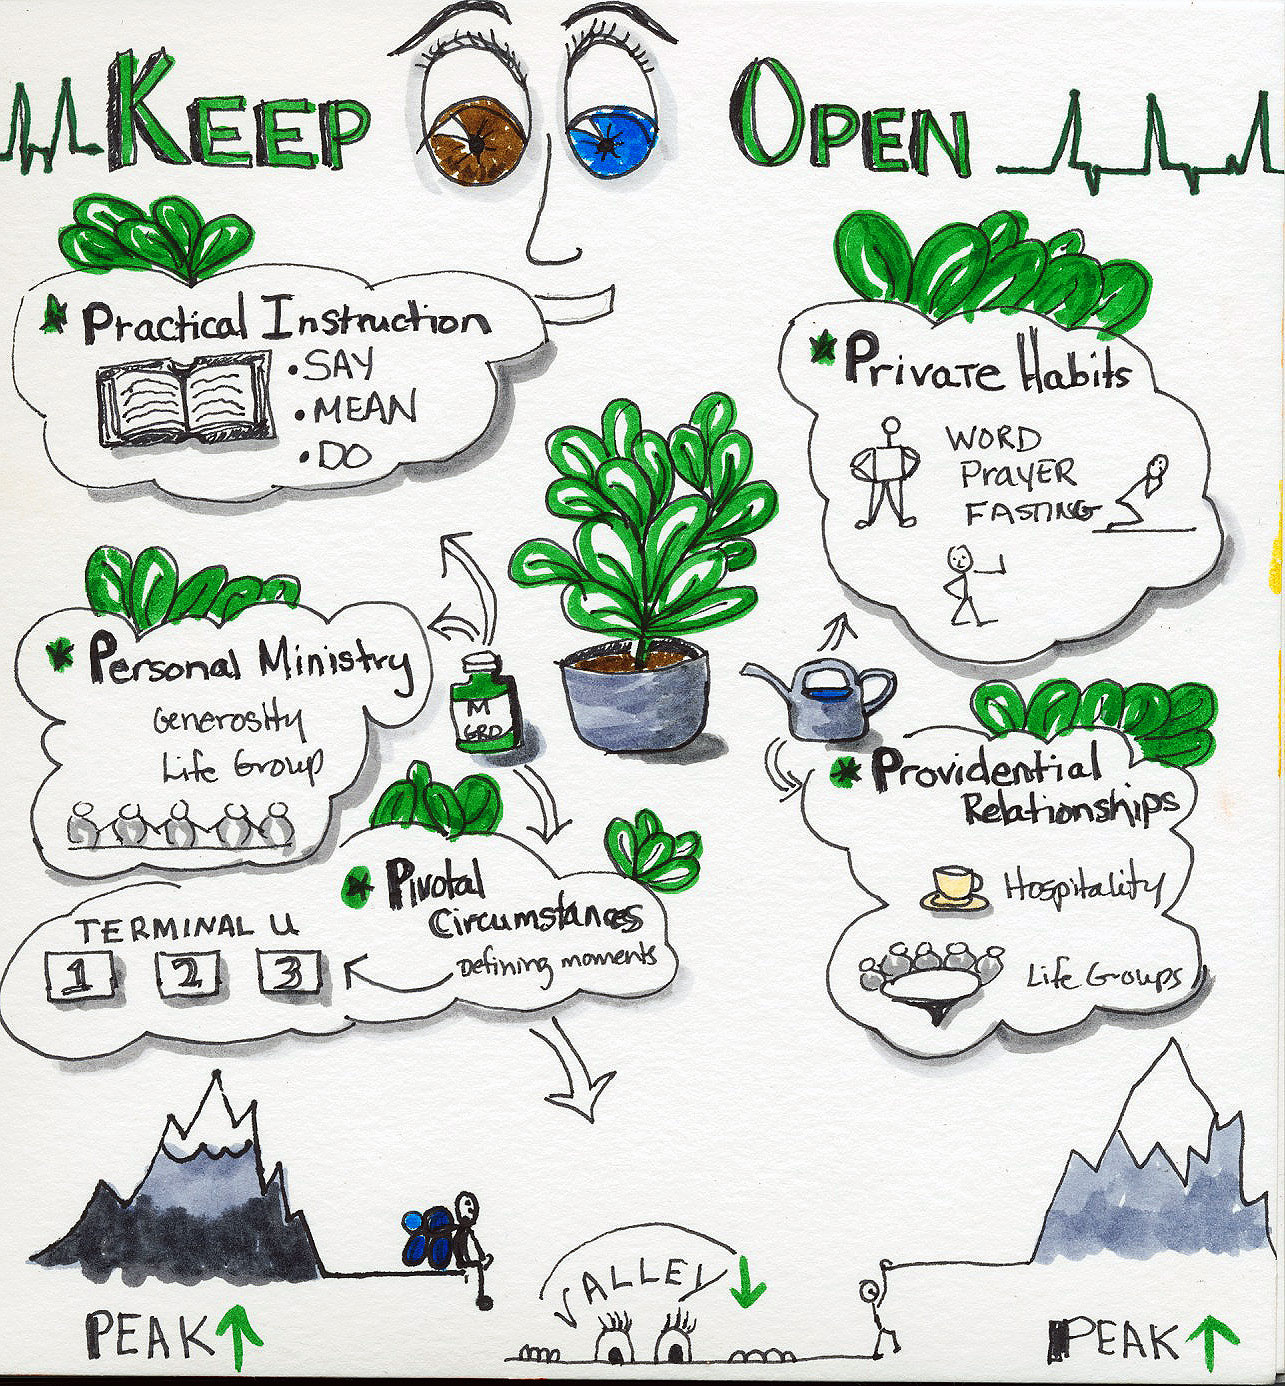 KEEP OPEN
* Practical Instruction
• SAY
• MEAN
• DO
* Private Habits
WORD
PRAYER
FASTING
* Personal Ministry
Generosity
Life Group
M
GRO
* Providential
Relationships
Hospitality
Life Groups
* Pivotal
Circumstances
Defining moments
TERMINAL U
1 2 3
VALLEY
PEAK
PEAK